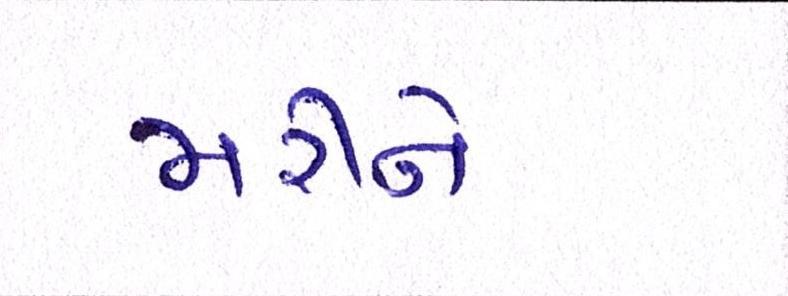 મરીને